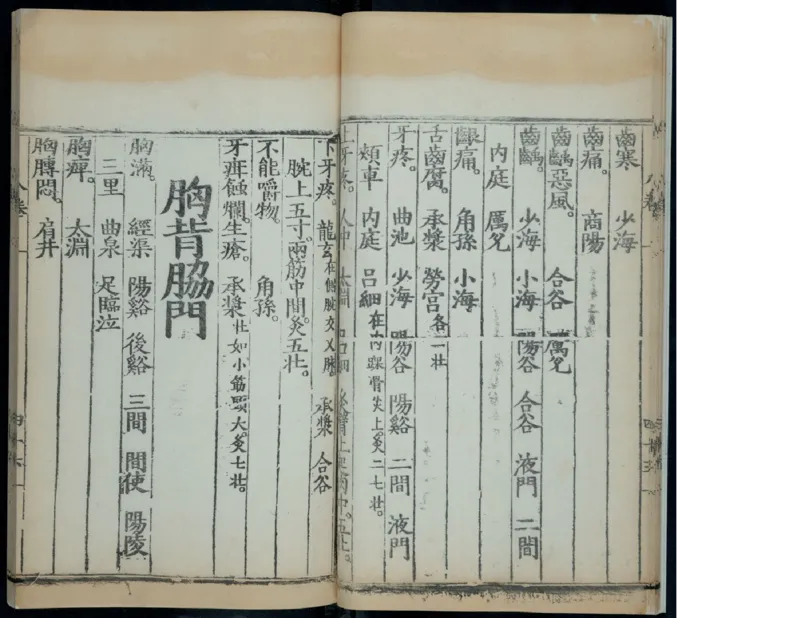 齒寒 少海
齒痛。 商陽
齒齲惡風。 合谷 厲兌
齒齲。 少海 小海 陽谷 合谷 液門 二間
內庭 厲兌
齦痛。 角孫 小海
舌齒腐。 承漿 勞宮各一壯
牙疼。 曲池 少海 陽谷 陽谿 二間 液門
頰車 內庭 呂細在內踝骨尖上。灸二七壯。
上牙疼。人中
下牙疼。龍玄在側腕交叉脉 承漿 合谷
腕上五寸。兩筋中間。灸五壯。
不能嚼物。 角孫。
牙疳蝕爛。生瘡。 承漿壯如小筯頭大。灸七壯。
胸背脇門
胸滿。 經渠 陽谿 後谿 三間 間使 陽陵
三里 曲泉 足臨泣
胸痺。 太淵
胸膊悶。 肩井